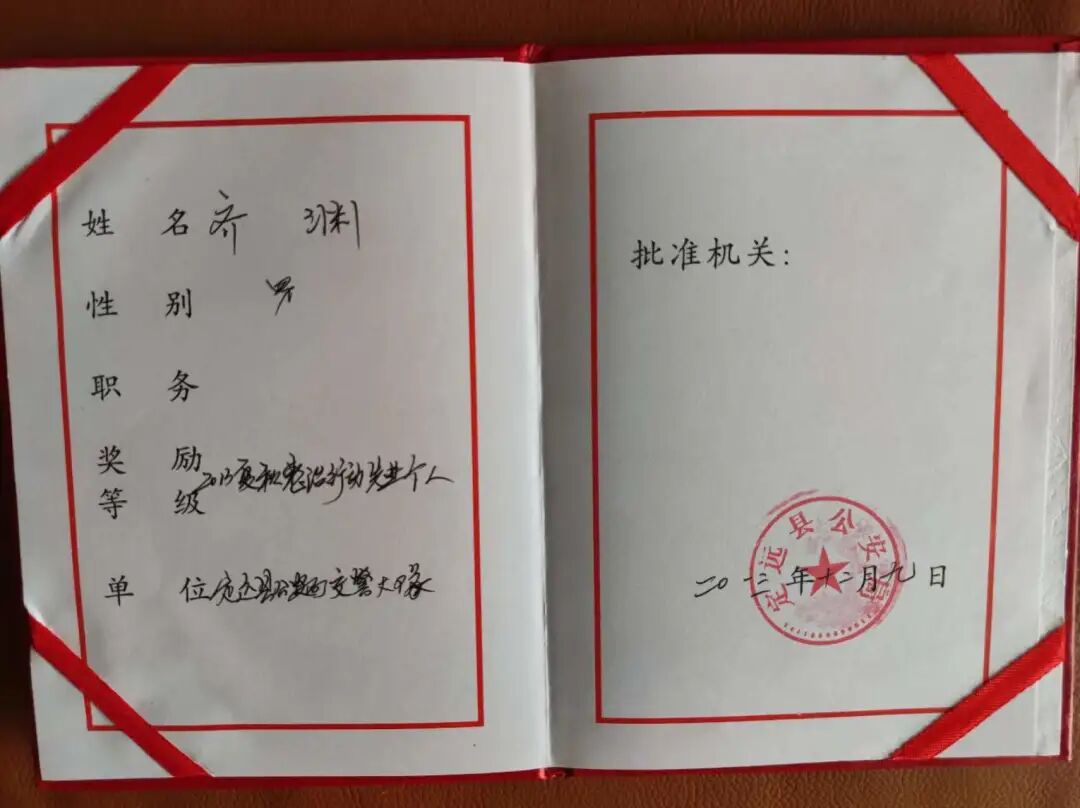 姓 名 齐 渊
性 别 男
职 务
奖 励
等 级 2013夏秋整治行动先进个人
单 位 定远县公安局交警大队
批准机关:
定远县公安局
二〇一三年十二月九日